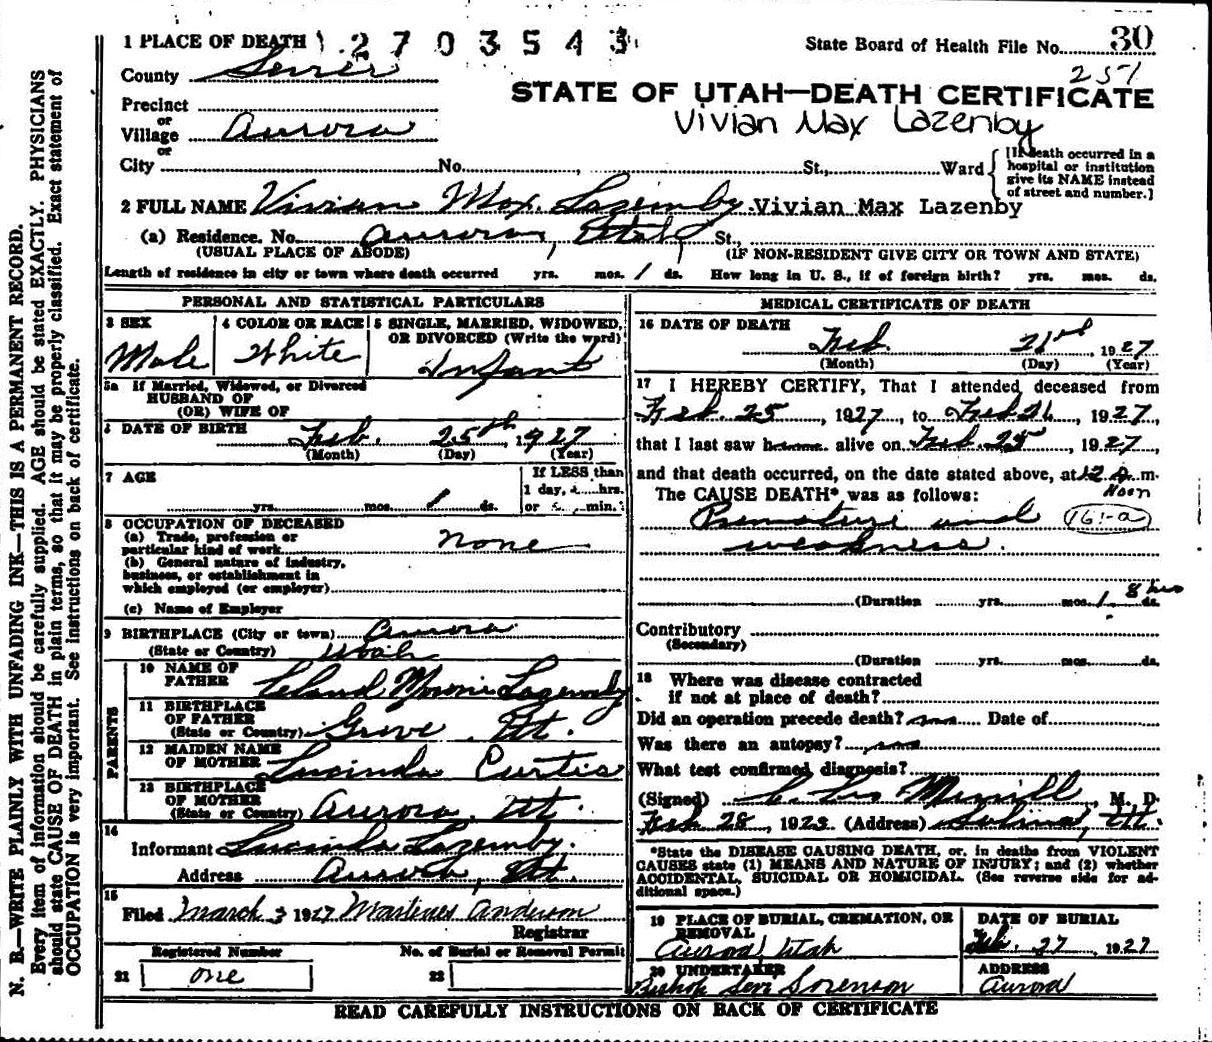 1 PLACE OF DEATH 2 7 0 3 5 4 3
State Board of Health File No. 30
257
County Sevier
STATE OF UTAH—DEATH CERTIFICATE
Vivian Max Lazenby
Precinct
or
Village Aurora
or
City No. St., Ward
[If death occurred in a
hospital or institution
give its NAME instead
of street and number.]
2 FULL NAME Vivian Max. Lazenby. Vivian Max Lazenby
(a) Residence. No. Aurora, Utah St.,
(USUAL PLACE OF ABODE) (IF NON-RESIDENT GIVE CITY OR TOWN AND STATE)
Length of residence in city or town where death occurred yrs. mos. 1 ds. How long in U. S., if of foreign birth? yrs. mos. ds.
PERSONAL AND STATISTICAL PARTICULARS
3 SEX
Male
4 COLOR OR RACE
White
5 SINGLE, MARRIED, WIDOWED,
OR DIVORCED (Write the word)
Infant
5a If Married, Widowed, or Divorced
HUSBAND OF
(OR) WIFE OF
6 DATE OF BIRTH Feb. 25th, 1927
(Month) (Day) (Year)
7 AGE
yrs. mos. 1 ds.
If LESS than
1 day, hrs.
or min.
8 OCCUPATION OF DECEASED
(a) Trade, profession or
particular kind of work none
(b) General nature of industry,
business, or establishment in
which employed (or employer)
(c) Name of Employer
9 BIRTHPLACE (City or town) Aurora
(State or Country) Utah
PARENTS
10 NAME OF
FATHER Leland Moroni Lazenby
11 BIRTHPLACE
OF FATHER
(State or Country) Grove Ut.
12 MAIDEN NAME
OF MOTHER Lucinda Curtis
13 BIRTHPLACE
OF MOTHER
(State or Country) Aurora, Ut.
14
Informant Lucinda Lazenby.
Address Aurora, Ut.
15
Filed March 3 1927 Anderson
Registrar
Registered Number
21 one
No. of Burial or Removal Permit
22
MEDICAL CERTIFICATE OF DEATH
16 DATE OF DEATH
Feb. 1927
(Month) (Day) (Year)
17 I HEREBY CERTIFY, That I attended deceased from
Feb. 25, 1927, to Feb 26, 1927,
that I last saw alive on Feb 25, 1927,
and that death occurred, on the date stated above, at 12 m.
Noon
The CAUSE DEATH* was as follows:
Premature and 161-a
weakness.
(Duration yrs. mos. 1. 8 hrs ds.
Contributory
(Secondary)
(Duration yrs. mos. ds.
18 Where was disease contracted
if not at place of death?
Did an operation precede death? no Date of
Was there an autopsy? no
What test confirmed diagnosis?
(Signed) Merrill, M. D.
Feb 28, 1923 (Address) Salina, Ut.
*State the DISEASE CAUSING DEATH, or, in deaths from VIOLENT
CAUSES state (1) MEANS AND NATURE OF INJURY; and (2) whether
ACCIDENTAL, SUICIDAL OR HOMICIDAL. (See reverse side for ad-
ditional space.)
19 PLACE OF BURIAL, CREMATION, OR
REMOVAL
Aurora, Utah
DATE OF BURIAL
Feb. 27, 1927
20 UNDERTAKER
Bishop Levi Sorenson
ADDRESS
Aurora
READ CAREFULLY INSTRUCTIONS ON BACK OF CERTIFICATE
N. B.—WRITE PLAINLY WITH UNFADING INK—THIS IS A PERMANENT RECORD.
Every item of information should be carefully supplied. AGE should be stated EXACTLY. PHYSICIANS
should state CAUSE OF DEATH in plain terms, so that it may be properly classified. Exact statement of
OCCUPATION is very important. See instructions on back of certificate.